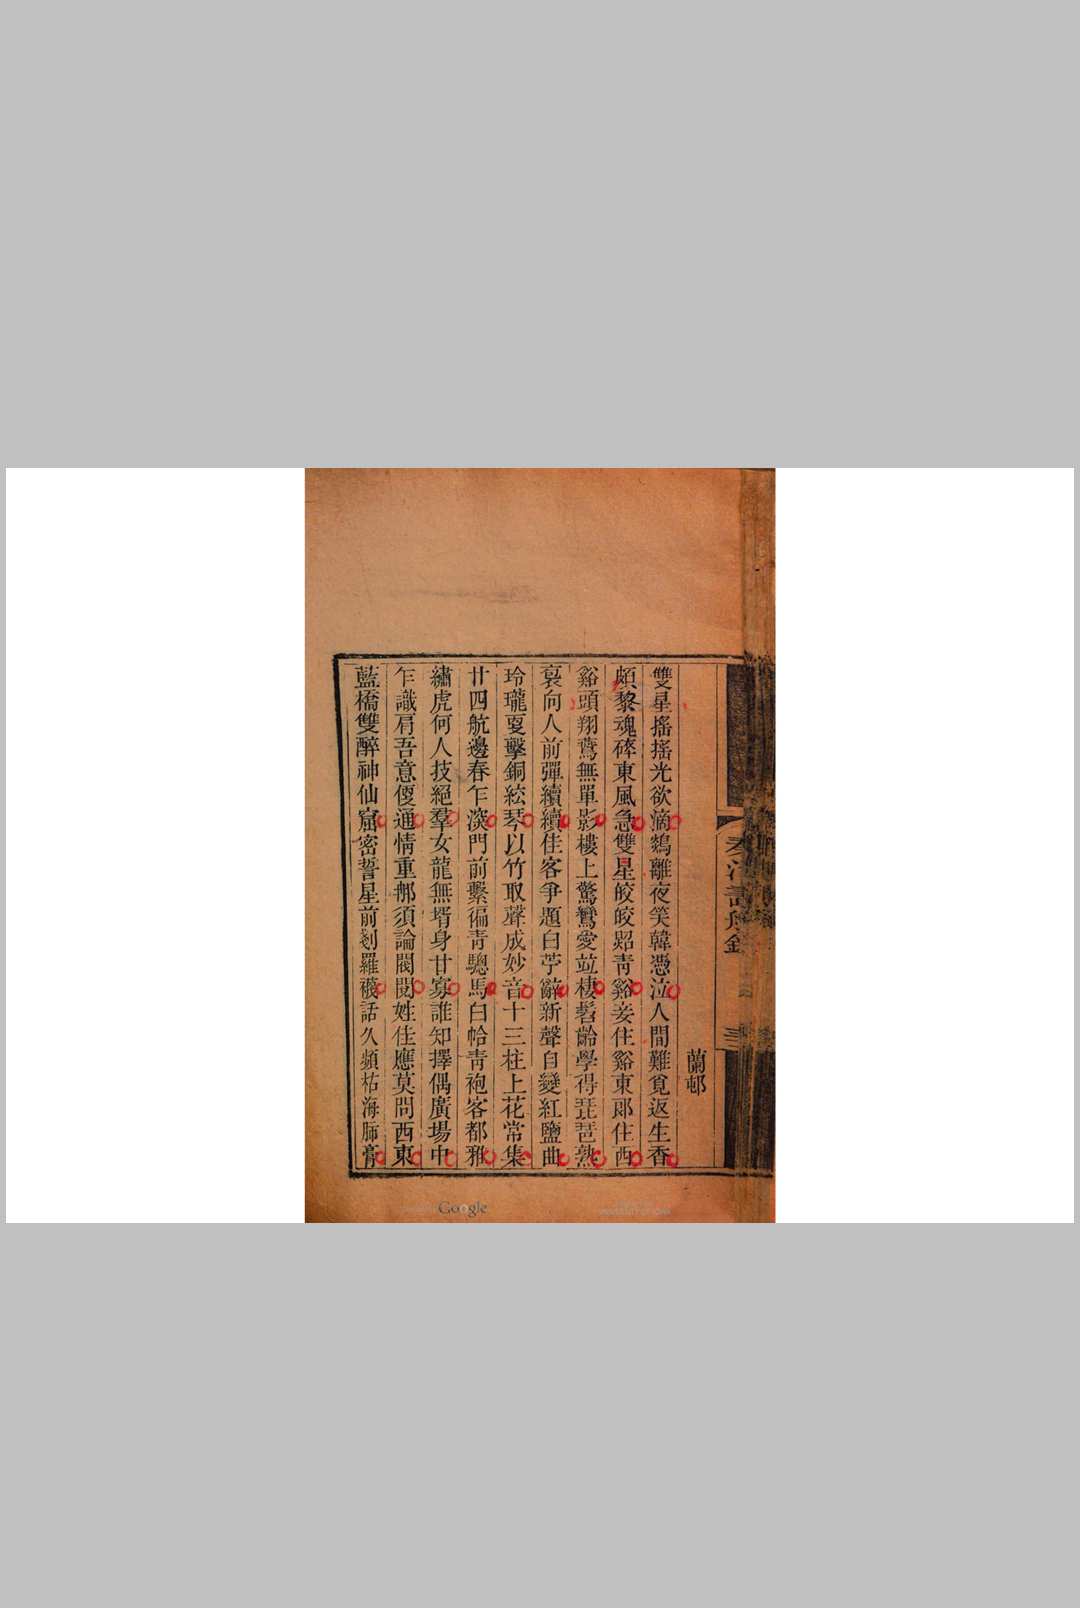 蘭邨
雙星搖搖光欲滴鶴離夜笑韓憑泣人間難覓返生香
頗黎魂碎東風急雙星皎皎照青谿妾住谿東郎住西
谿頭翔鷺無單影樓上驚鸞愛竝棲髫齡學得琵琶熟
裒向人前彈續續佳客爭題白苧辭新聲自變紅鹽曲
玲瓏戛擊銅絃琴以竹取聲成妙音十三柱上花常集
廿四航邊春乍深門前繫徧青驄馬白帢青袍客都雅
繡虎何人技絕羣女龍無壻身甘寡誰知擇偶廣場中
乍識肩吾意便通情重那須論閥閱姓佳應莫問西東
藍橋雙醉神仙窟密誓星前剗羅襪話久頻枯海肺膏
Google